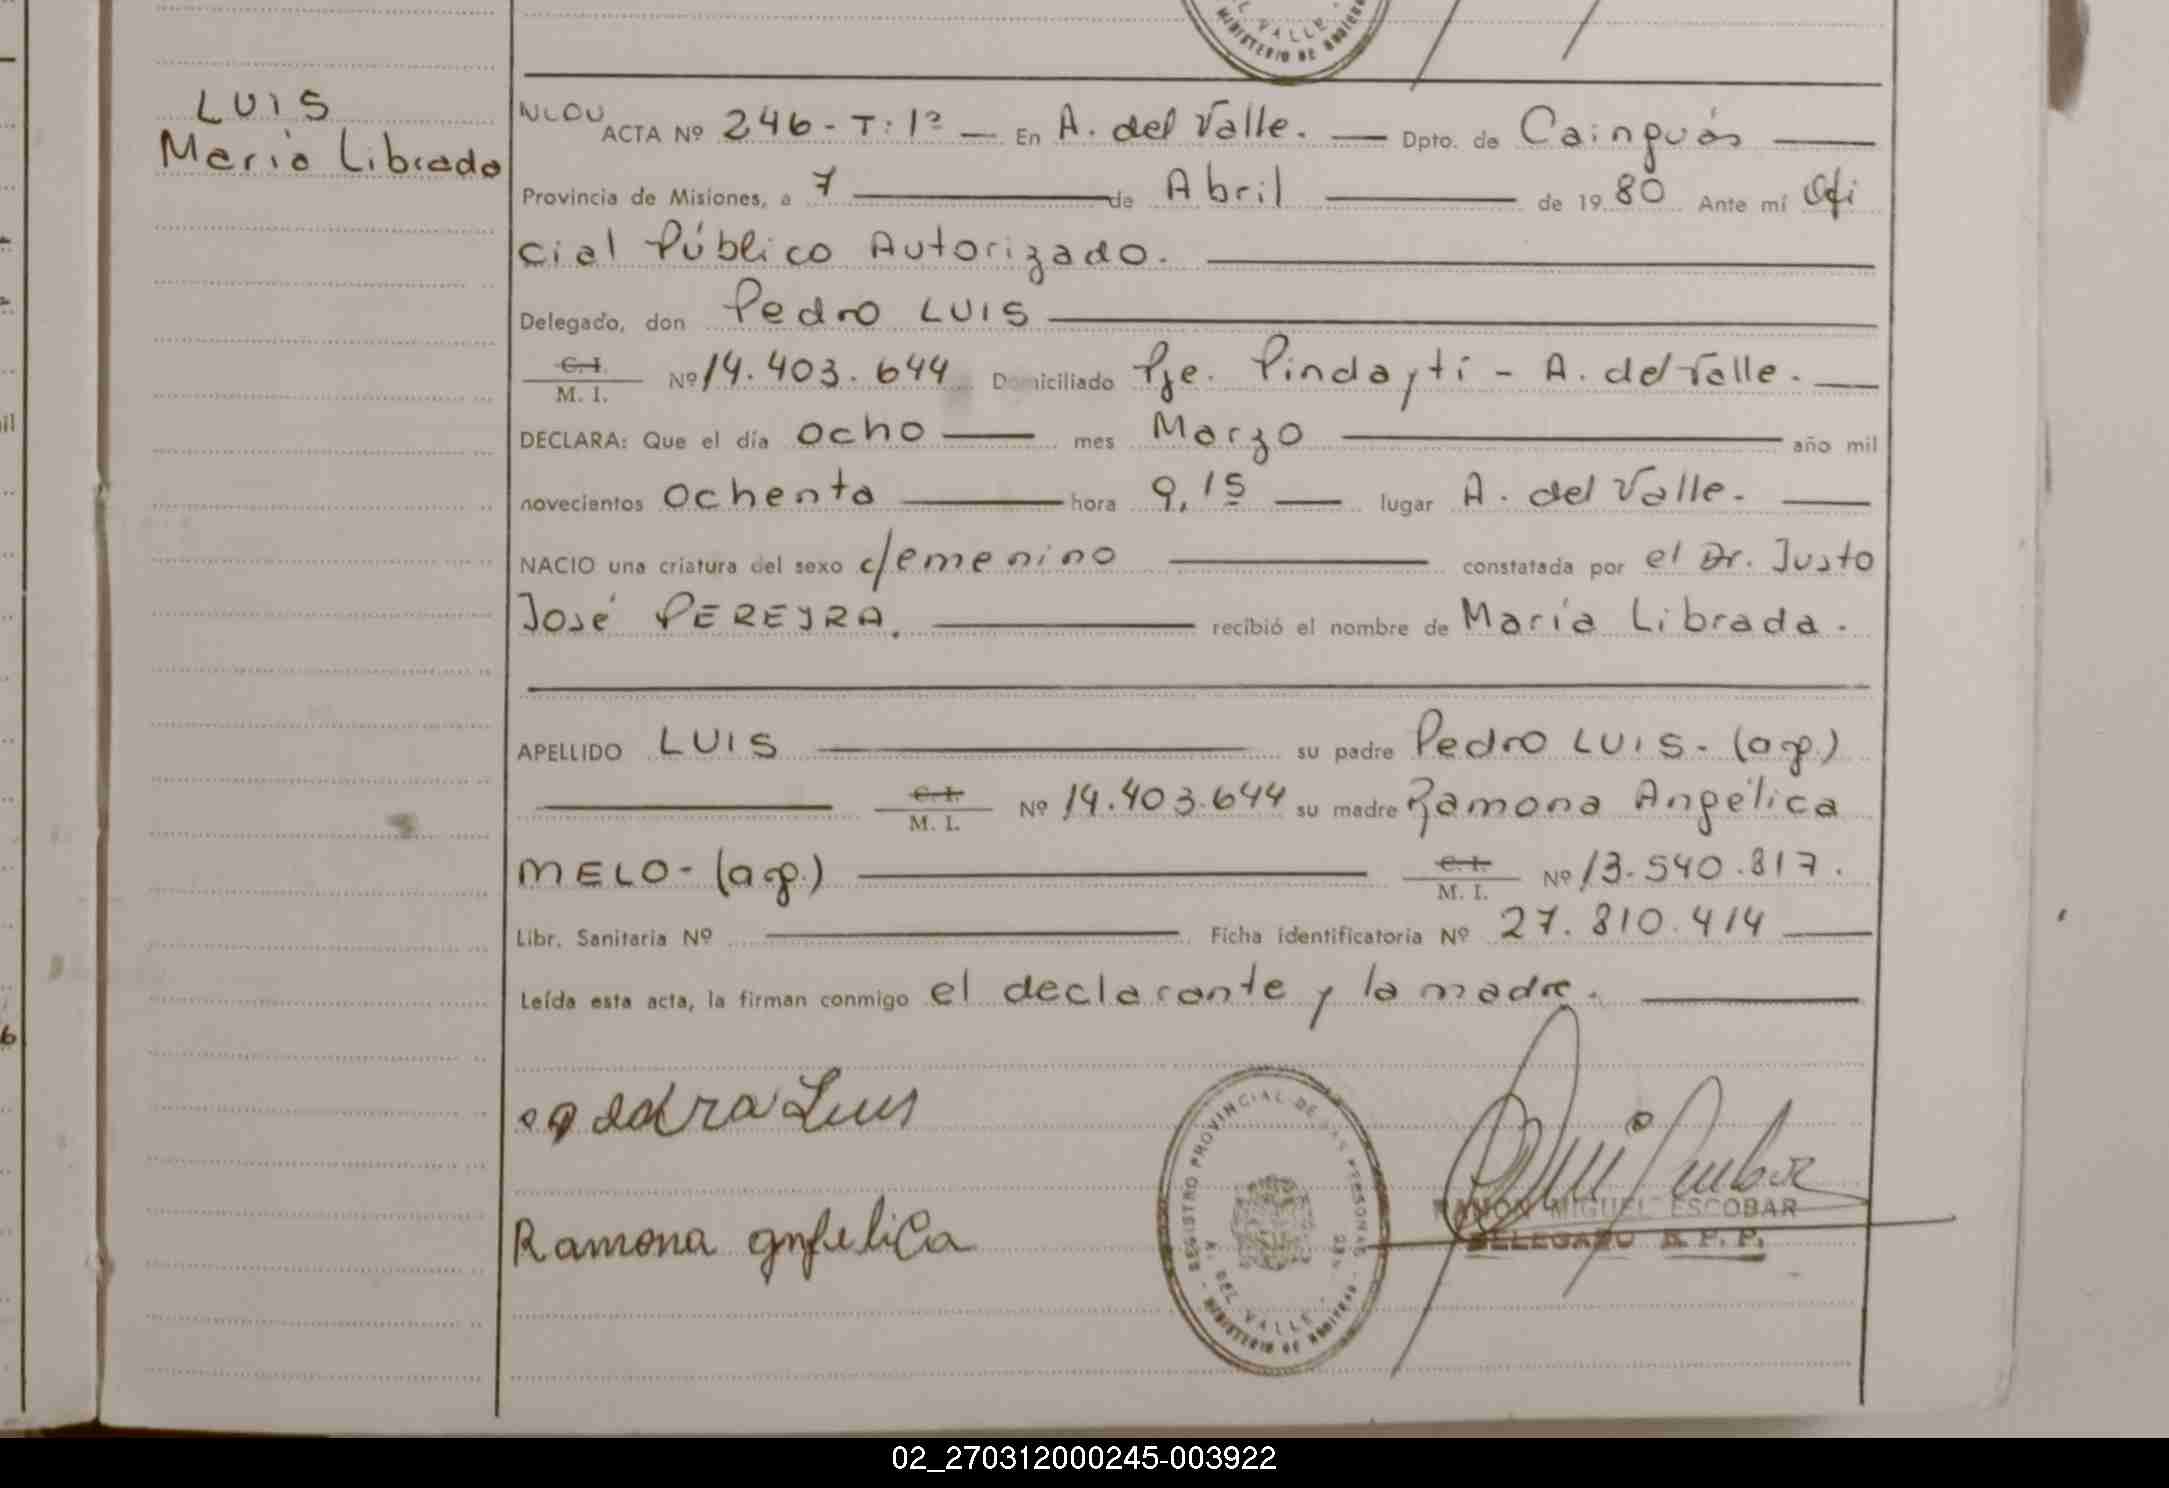 L VALLE
MINISTERIO DE GOBIERNO
LUIS
María Librada
ACTA Nº 246 - T: 1º — En A. del Valle. — Dpto. de Cainguás
Provincia de Misiones, a 7 de Abril de 1980 Ante mí Ofi
cial Público Autorizado.
Delegado, don Pedro LUIS
C. I. / M. I. Nº 14.403.644 Domiciliado Pje. Pindaytí - A. del Valle.
DECLARA: Que el día ocho mes Marzo año mil
novecientos ochenta hora 9,15 lugar A. del Valle.
NACIO una criatura del sexo femenino constatada por el Dr. Justo
José PEREYRA. recibió el nombre de María Librada.
APELLIDO LUIS su padre Pedro LUIS - (arg.)
C. I. / M. I. Nº 14.403.644 su madre Ramona Angélica
MELO - (arg.) C. I. / M. I. Nº 13.540.817.
Libr. Sanitaria Nº Ficha identificatoria Nº 27.810.414
Leída esta acta, la firman conmigo el declarante y la madre.
Luis
REGISTRO PROVINCIAL DE LAS PERSONAS
DEL VALLE
MINISTERIO DE GOBIERNO
RAMON MIGUEL ESCOBAR
DELEGADO R. P. P.
Ramona angelica
02_270312000245-003922